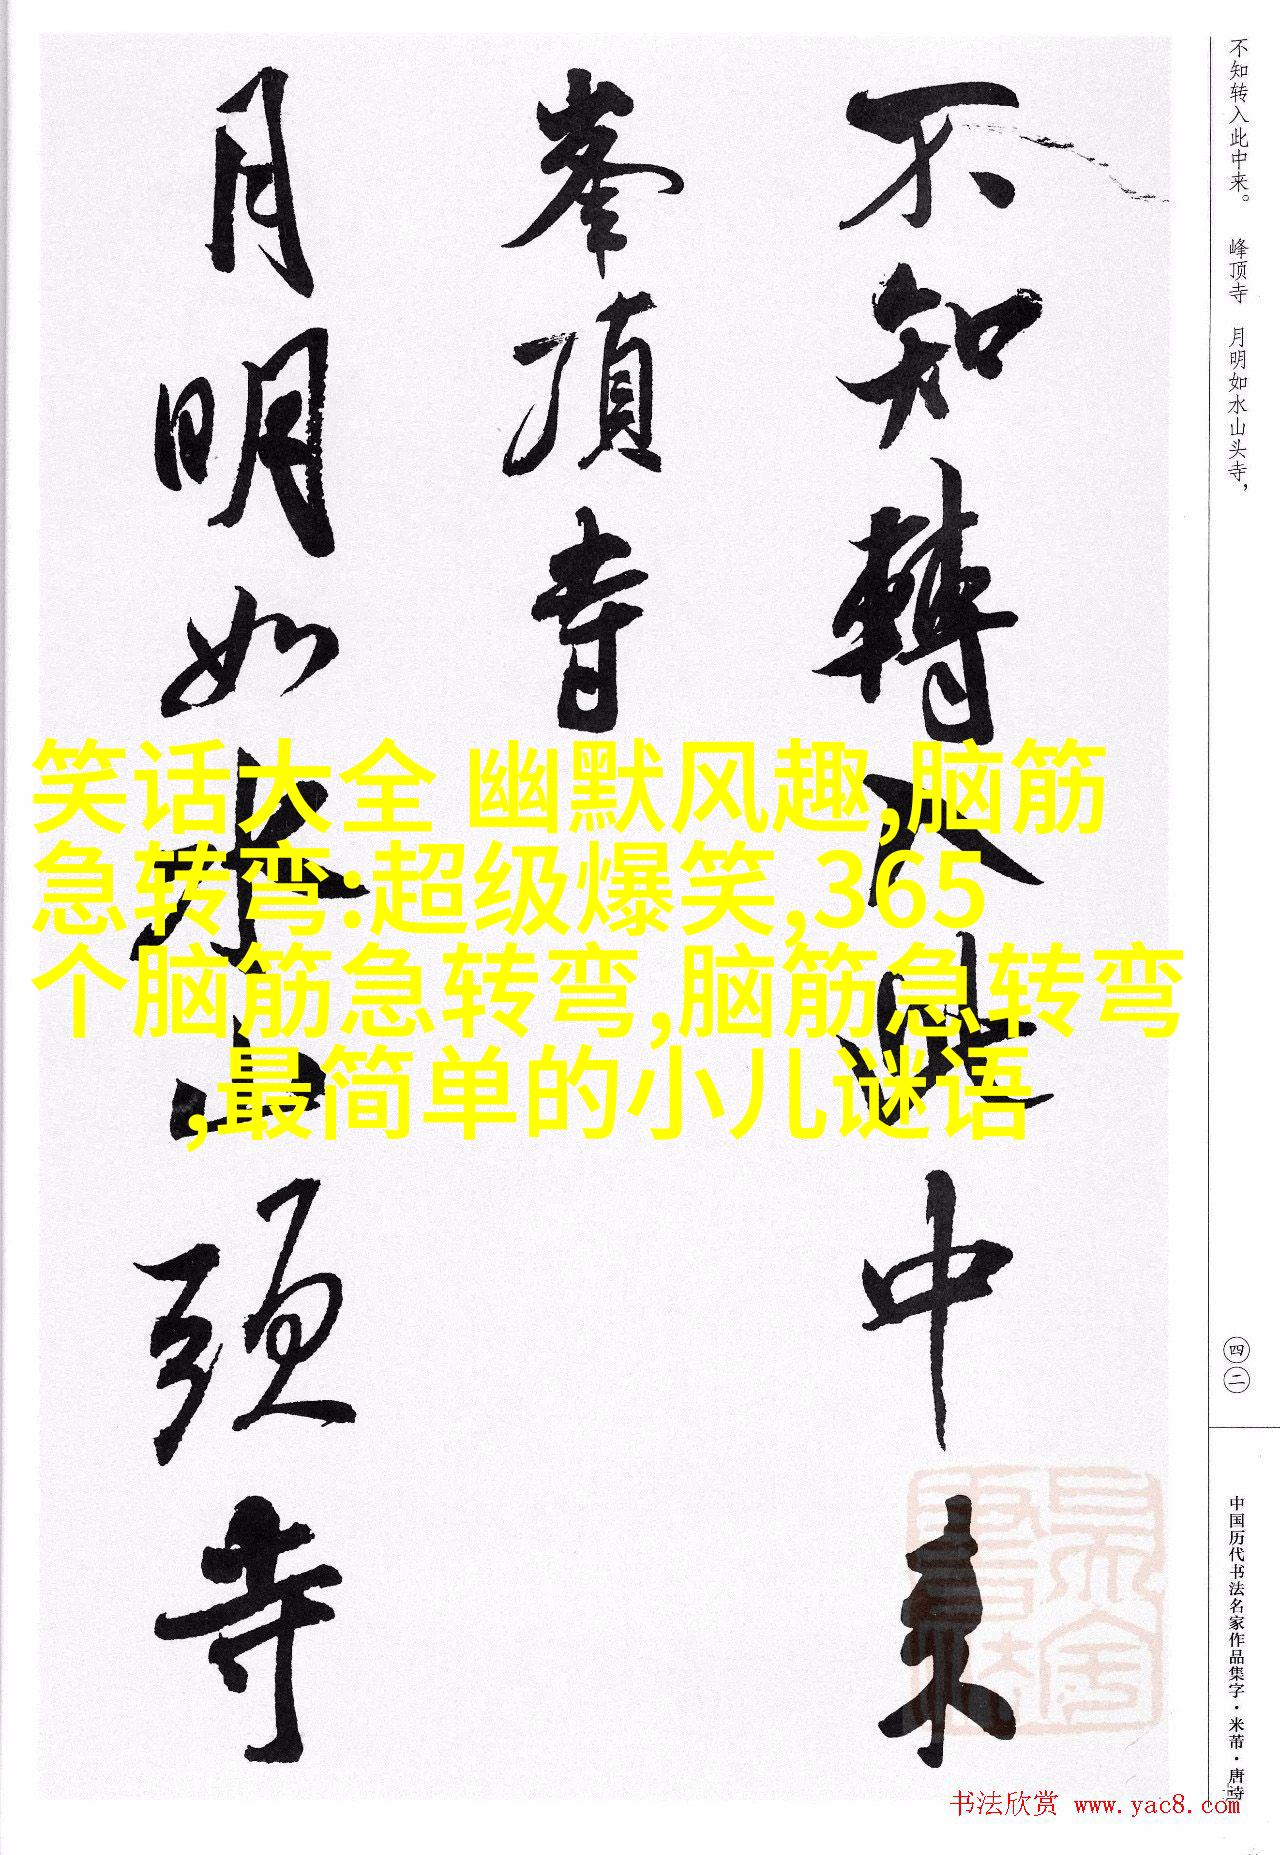 不知转入此中来。 峰顶寺 月明如水山头寺，
不知轉入此中来
峯頂寺
月明如水山頭寺
笑话大全 幽默风趣,脑筋
急转弯:超级爆笑,365
个脑筋急转弯,脑筋急转弯
,最简单的小儿谜语
四二
中国历代书法名家作品集字·米芾·唐诗
书法欣赏 www.yac8.com